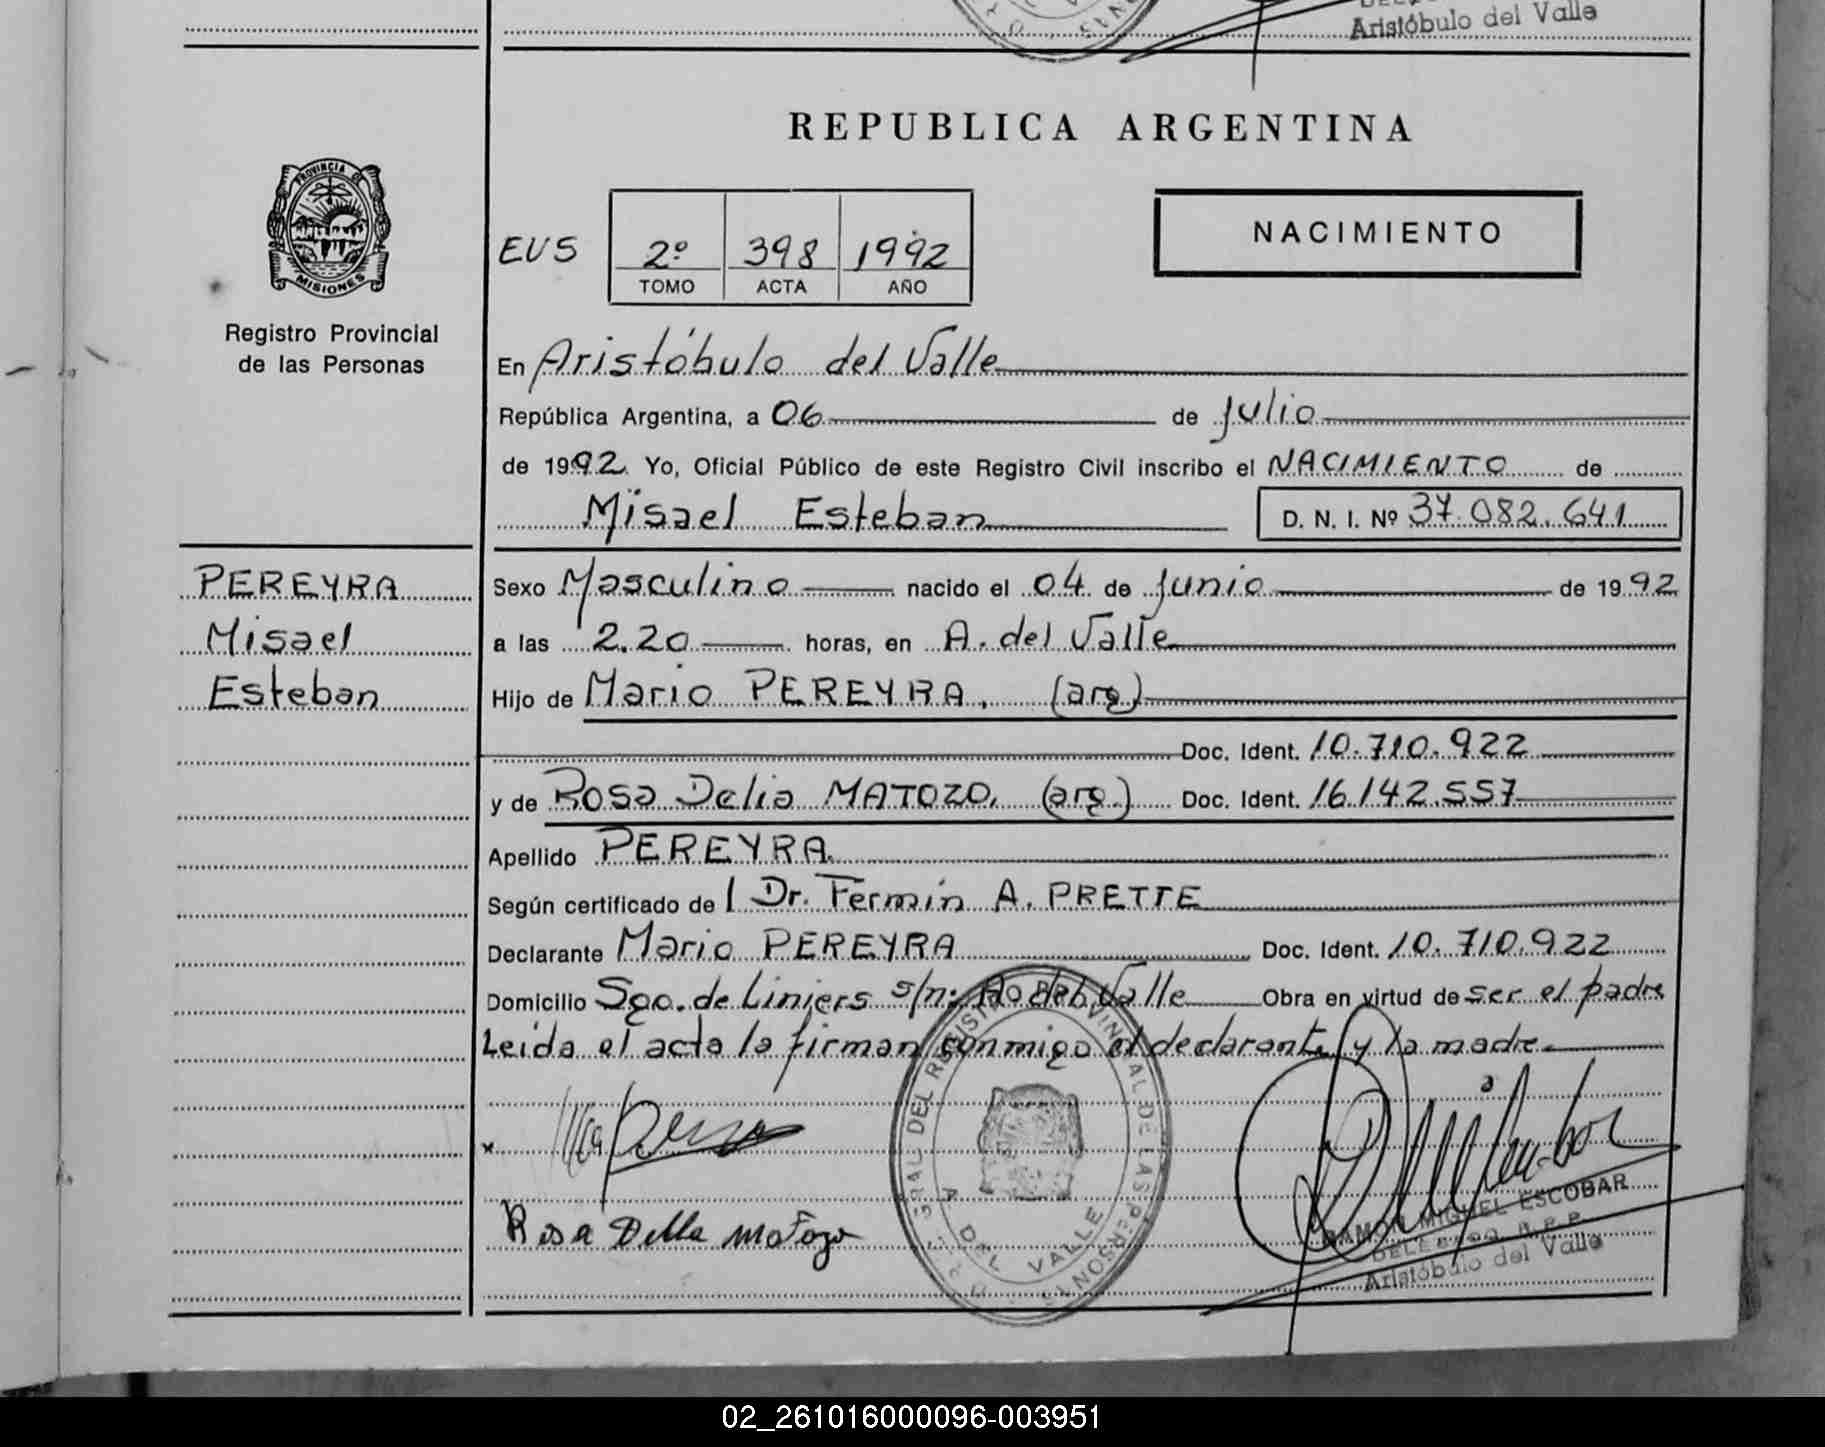 Aristóbulo del Valle
REPUBLICA ARGENTINA
PROVINCIA DE
MISIONES
Registro Provincial
de las Personas
EUS 2º 398 1992
TOMO ACTA AÑO
NACIMIENTO
En Aristóbulo del Valle
República Argentina, a 06 de julio
de 1992. Yo, Oficial Público de este Registro Civil inscribo el NACIMIENTO de
Misael Esteban D. N. I. Nº 37.082.641
PEREYRA
Misael
Esteban
Sexo Masculino nacido el 04 de junio de 1992
a las 2.20 horas, en A. del Valle
Hijo de Mario PEREYRA, (arg)
Doc. Ident. 10.710.922
y de Rosa Delia MATOZO, (arg.) Doc. Ident. 16.142.557
Apellido PEREYRA
Según certificado del Dr. Fermín A. PRETTE
Declarante Mario PEREYRA Doc. Ident. 10.710.922
Domicilio Sgo. de Liniers s/n: Ao del Valle Obra en virtud de ser el padre
Leída el acta la firman conmigo el declarante y la madre.
x
Rosa Delia matozo
GRAL DEL REGISTRO PROVINCIAL DE LAS PERSONAS
A DEL VALLE
RAMON MIGUEL ESCOBAR
Aristóbulo del Valle
02_261016000096-003951